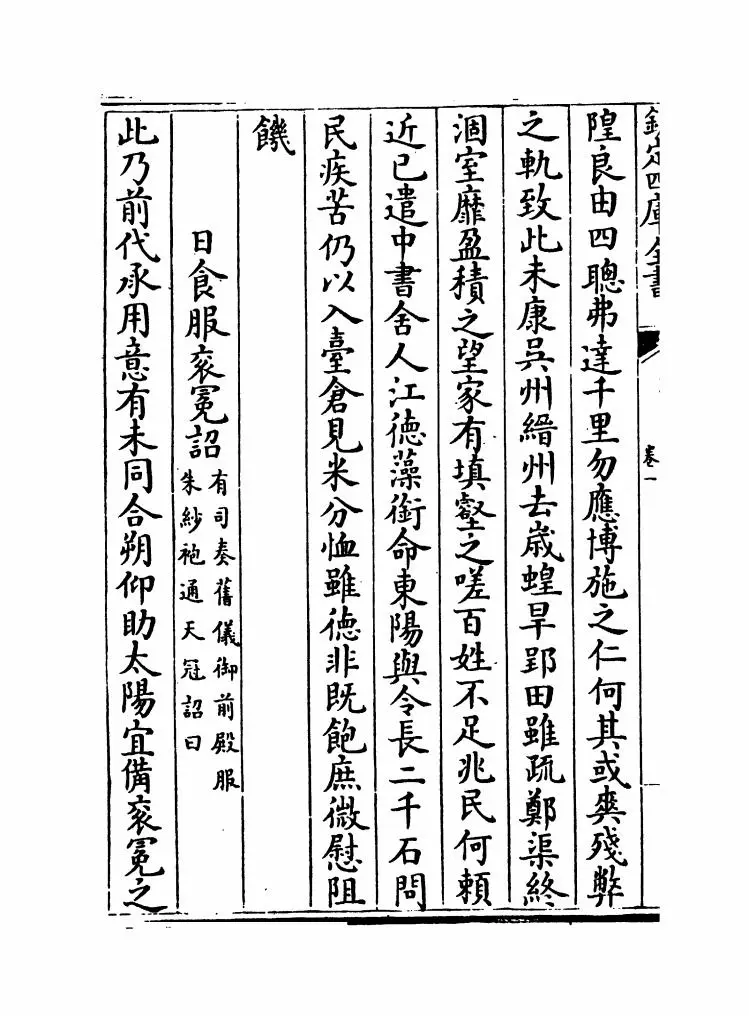 欽定四庫全書
卷一
隍良由四聰弗達千里勿應博施之仁何其或爽殘弊
之軌致此未康吳州縉州去歳蝗旱郢田雖疏鄭渠終
涸室靡盈積之望家有填壑之嗟百姓不足兆民何頼
近已遣中書舍人江德藻銜命東陽與令長二千石問
民疾苦仍以入臺倉見米分恤雖德非既飽庶微慰阻
饑
日食服衮冕詔
有司奏舊儀御前殿服
朱紗袍通天冠詔曰
此乃前代承用意有未同合朔仰助太陽宜備衮冕之